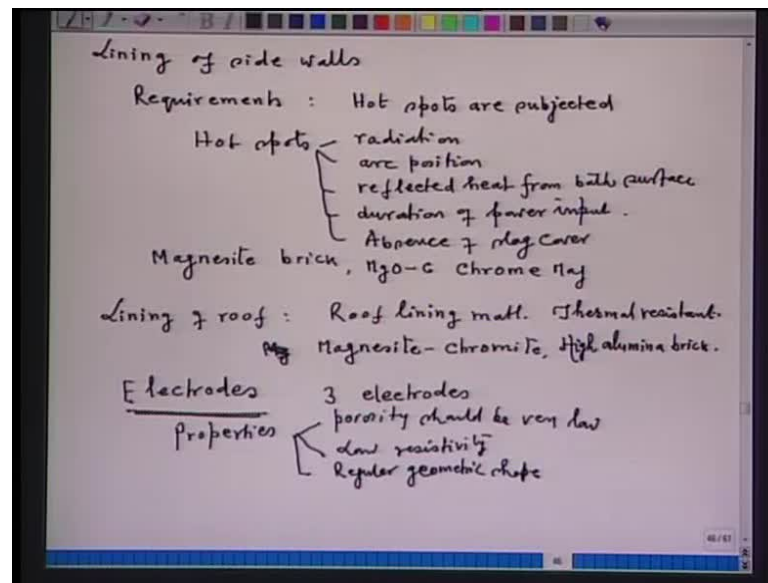 Lining of side walls
Requirements : Hot spots are subjected
Hot spots radiation
arc position
reflected heat from bath surface
duration of power input.
Absence of slag cover
Magnesite brick, MgO-C Chrome Mag
Lining of roof : Roof lining matl. Thermal resistant.
Mg Magnesite-Chromite, High alumina brick.
Electrodes 3 electrodes
Properties porosity should be very low
Low resistivity
Regular geometric shape
46/61
46